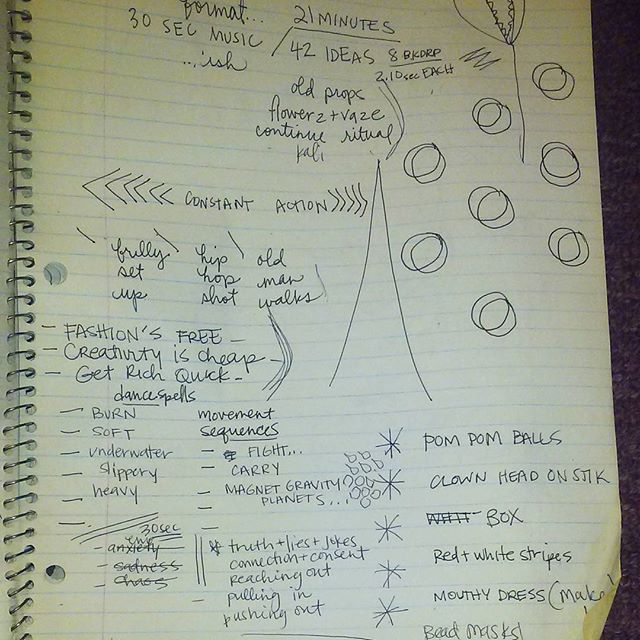 format...
30 SEC MUSIC
...'ish
21 MINUTES
42 IDEAS 8 BKDRP
2.10 sec EACH
old props
flowerz + vaze
continue ritual
kali
CONSTANT ACTION
frilly hip old
set hop man
up shot walks
- FASHION'S FREE -
- Creativity is cheap -
- Get Rich Quick -
dancespells
- BURN
- SOFT
- underwater
slippery
- heavy
-
movement
sequences
- FIGHT...
- CARRY
- MAGNET GRAVITY
- PLANETS...
30sec
- anxiety
- sadness
- chaos
* truth + lies + jokes
connection + consent
reaching out
- pulling in
pushing out
POM POM BALLS
CLOWN HEAD ON STIK
BOX
Red + white stripes
MOUTHY DRESS (make!
Bead MASKS!